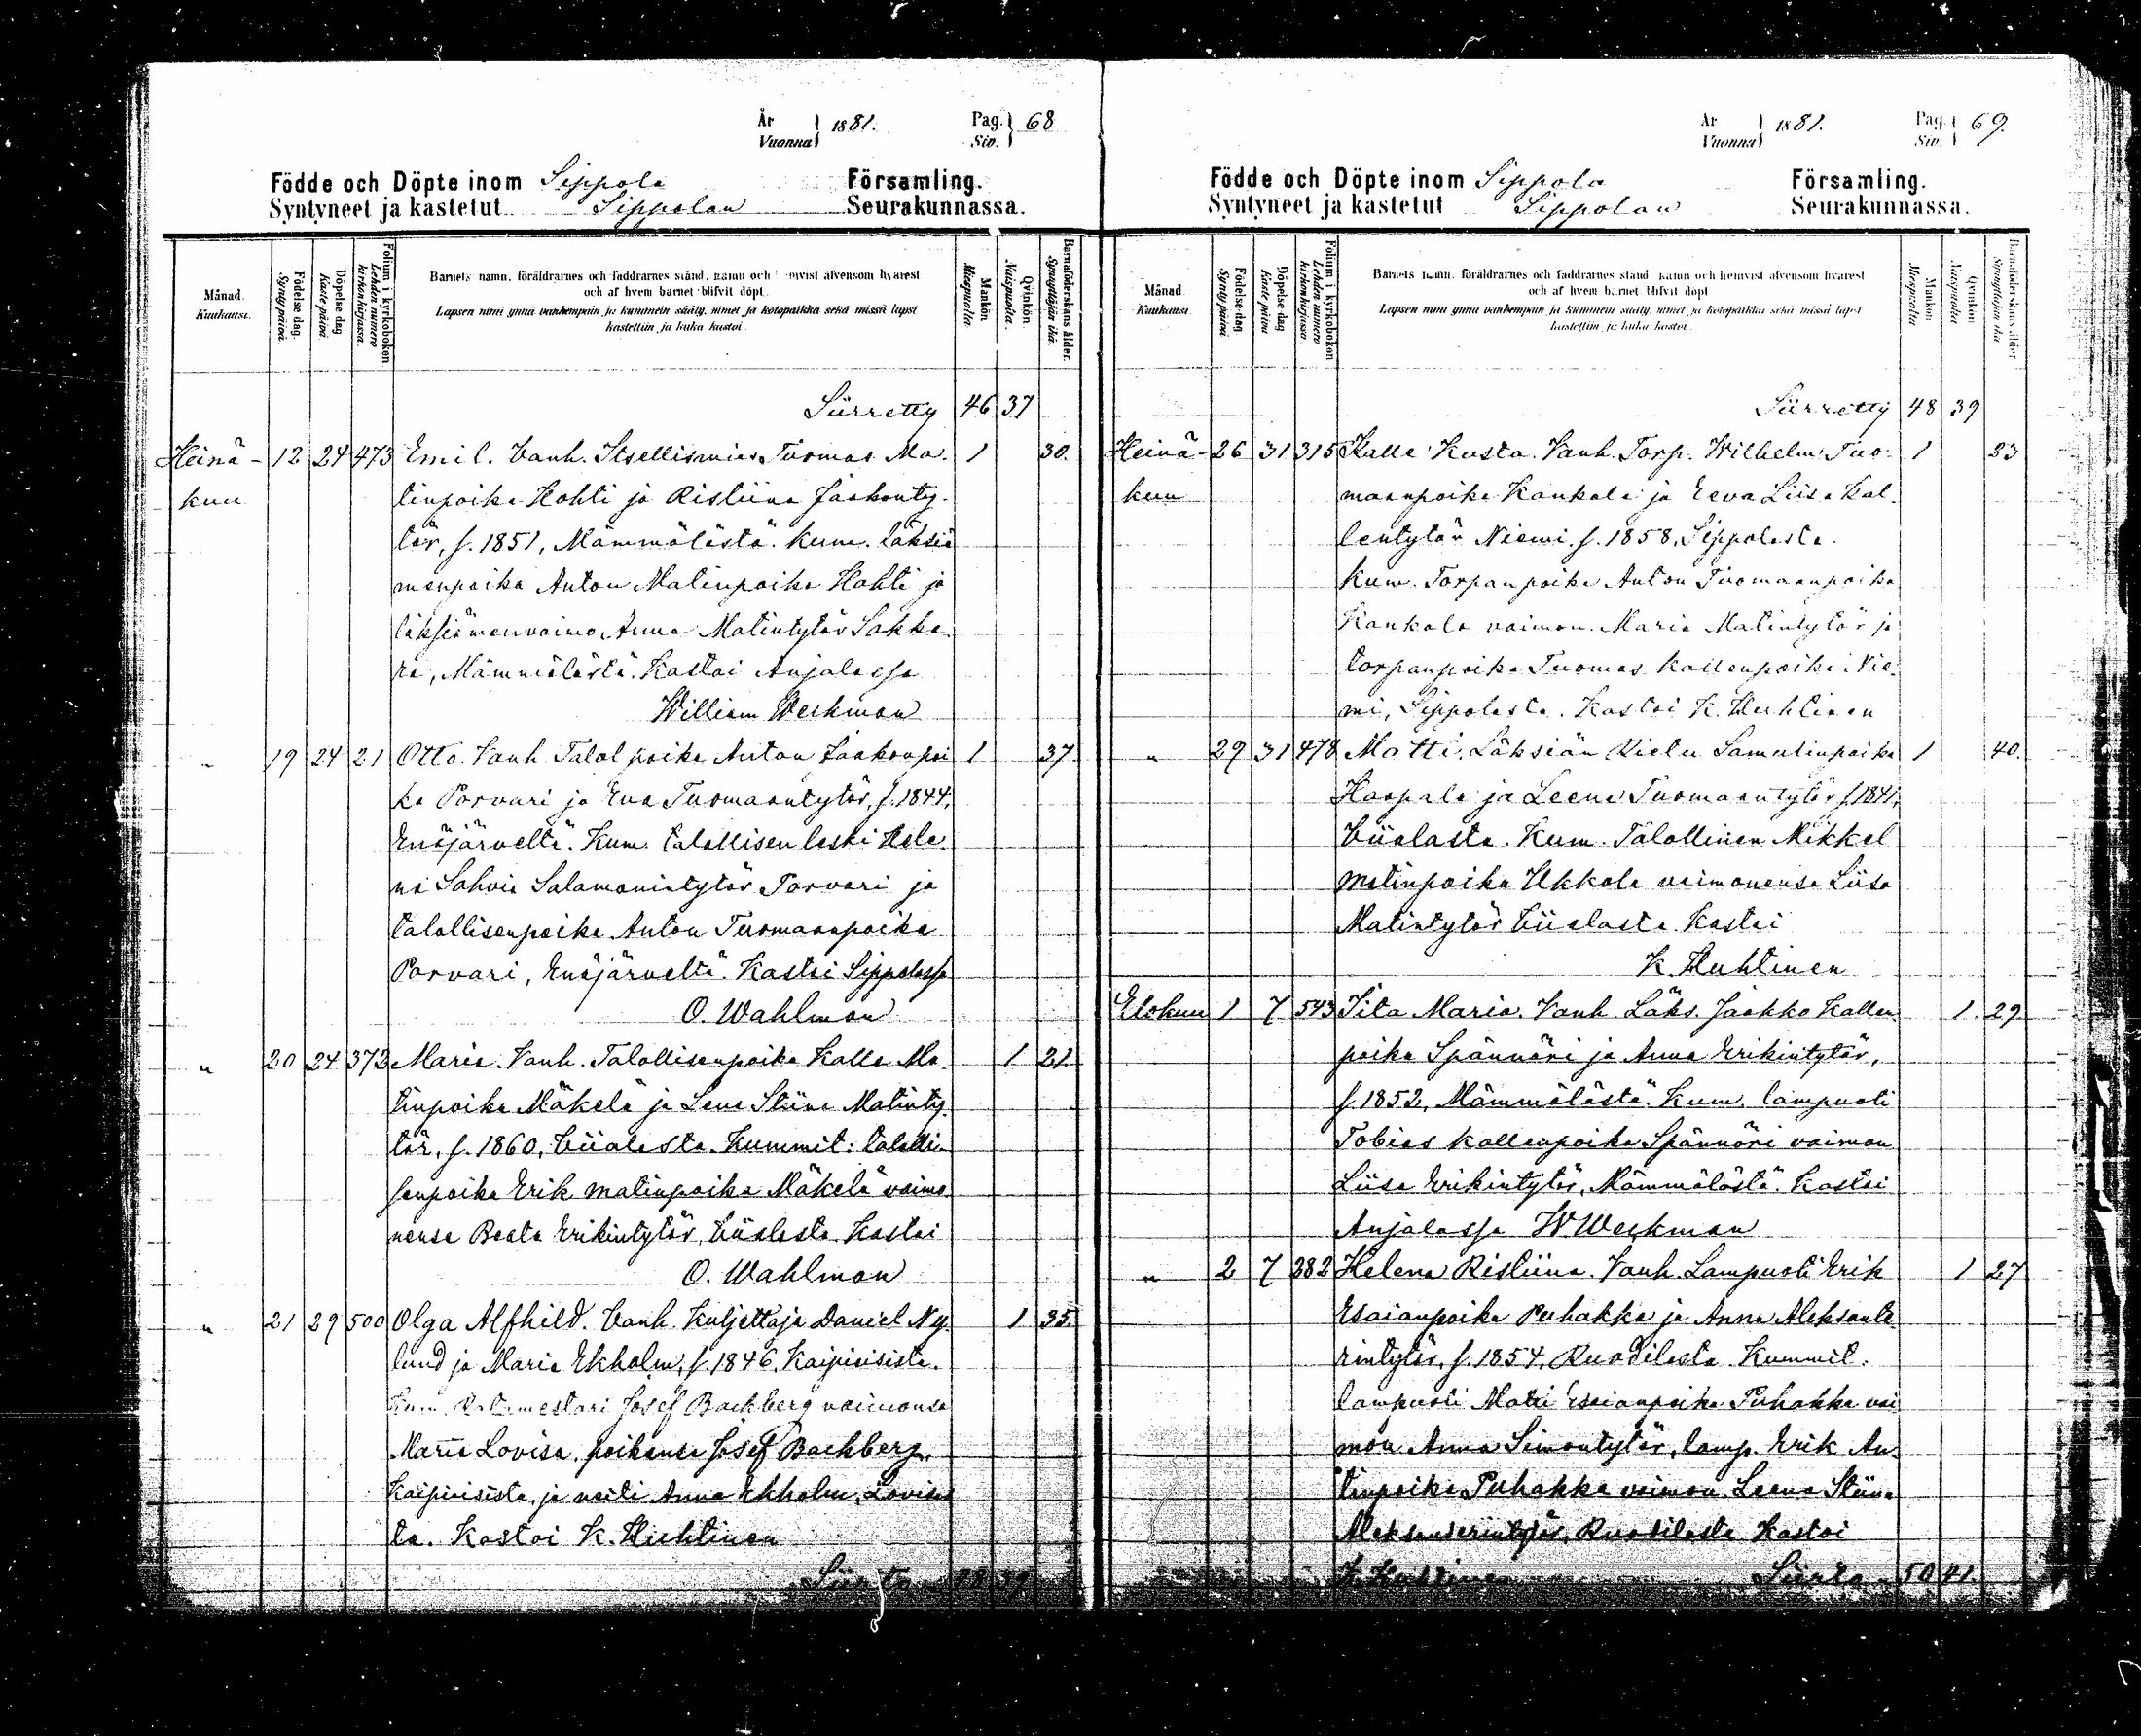 År Vuonna 1881. Pag. Siv. 68
Födde och Döpte inom Sippola Församling.
Syntyneet ja kastetut Sippolan Seurakunnassa.
Månad. Kuukausi.
Födelse dag. Syntypäivä.
Döpelse dag. Kastepäivä.
Folium i kyrkoboken Lehden numero kirkonkirjassa.
Barnets namn, föräldrarnes och faddrarnes stånd, namn och hemvist äfvensom hvarest
och af hvem barnet blifvit döpt.
Lapsen nimi ynnä vanhempain ja kummein sääty, nimet ja kotopaikka sekä missä lapsi
kastettiin ja kuka kastoi.
Mankön Miespuolta.
Qvinkön Naispuolta.
Barnaföderskans ålder. Synnyttäjän ikä.
Siirretty 46 37
Heinä- 12 24 473 Emil. Vanh. Itsellismies Tuomas Ma- 1 30.
kuu tinpoika Hohti ja Kristiina Jaakonty-
tär, s. 1851, Mämmälästä. Kum. läksiä
menpoika Anton Matinpoika Hohti ja
läksiämenvaimo Anna Matintytär Sakka-
ra, Mämmälästä. Kastoi Anjalassa
William Weckman
" 19 24 21 Otto. Vanh. Talol poika Anton Jaakonpoi 1 37.
ka Porvari ja Eva Tuomaantytär, s. 1844,
Enäjärveltä. Kum. talollisen leski Hele-
na Sohvia Salamonintytär Porvari ja
talollisenpoika Anton Tuomaanpoika
Porvari, Enäjärveltä. Kastoi Sippolassa
O. Wahlman
" 20 24 373 Maria. Vanh. Talollisenpoika Kalle Ma- 1 21.
tinpoika Mäkelä ja Lena Stiina Matinty-
tär, s. 1860, Viialasta. Kummit: talolli-
senpoika Erik Matinpoika Mäkelä vaimo-
nensa Beata Erikintytär, Viialasta. Kastoi
O. Wahlman
" 21 29 500 Olga Alfhild. Vanh. Kuljettaja Daniel Ny- 1 35.
lund ja Maria Ekholm, s. 1846, Kaipiaisista.
Kum. Ratamestari Josef Backberg vaimonsa
Maria Lovisa, poikansa Josef Backberg
Kaipiaisista, ja neiti Anna Ekholm, Lovisas
ta. Kastoi K. Huhtinen
Siirto 48 39
År Vuonna 1881. Pag. Siv. 69.
Födde och Döpte inom Sippola Församling.
Syntyneet ja kastetut Sippolan Seurakunnassa.
Månad. Kuukausi.
Födelse dag. Syntypäivä
Döpelse dag Kastepäivä
Folium i kyrkoboken Lehden numero kirkonkirjassa
Barnets namn, föräldrarnes och faddrarnes stånd, namn och hemvist äfvensom hvarest
och af hvem barnet blifvit döpt
Lapsen nimi ynnä vanhempain ja kummein sääty, nimet ja kotopaikka sekä missä lapsi
kastettiin ja kuka kastoi.
Mankön Miespuolta
Qvinkön Naispuolta
Barnaföderskans ålder Synnyttäjän ikä
Siirretty 48 39
Heinä- 26 31 315 Kalle Kusta. Vanh. Torp. Wilhelm Tuo- 1 23
kuu maanpoika Kankala ja Eeva Liisa Kal-
lentytär Niemi, s. 1858, Sippolasta.
Kum. Torpanpoika Anton Tuomaanpoika
Kankala vaimon. Maria Matintytär ja
torpanpoika Tuomas Kallenpoika Nie-
mi, Sippolasta. Kastoi K. Huhtinen
" 29 31 478 Matti. Läksiän Samulinpoika 1 40.
Haapala ja Leena Tuomaantytär s. 1841,
Viialasta. Kum. Talollinen Mikkel
Matinpoika Ukkola vaimonensa Liisa
Matintytär Viialasta. Kastoi
K. Huhtinen
Elokuu 1 7 543 Iita Maria. Vanh. Läks. Jaakko Kallen- 1 29
poika Spännäri ja Anna Erikintytär,
s. 1852, Mämmälästä. Kum. lampuoti
Tobias Kallenpoika Spännäri vaimon
Liisa Erikintytär, Mämmälästä. Kastoi
Anjalassa W Weckman
" 2 7 282 Helena Kristiina. Vanh. Lampuoti Erik 1 27
Esaianpoika Puhakka ja Anna Aleksante-
rintytär, s. 1854, Ruotilasta. Kummit:
lampuoti Matti Esaianpoika Puhakka vai
mon Anna Simontytär, lamp. Erik An-
tinpoika Puhakka vaimon Leena Stiina
Aleksanterintytär, Ruotilasta. Kastoi
K. Huhtinen Siirto 50 41.